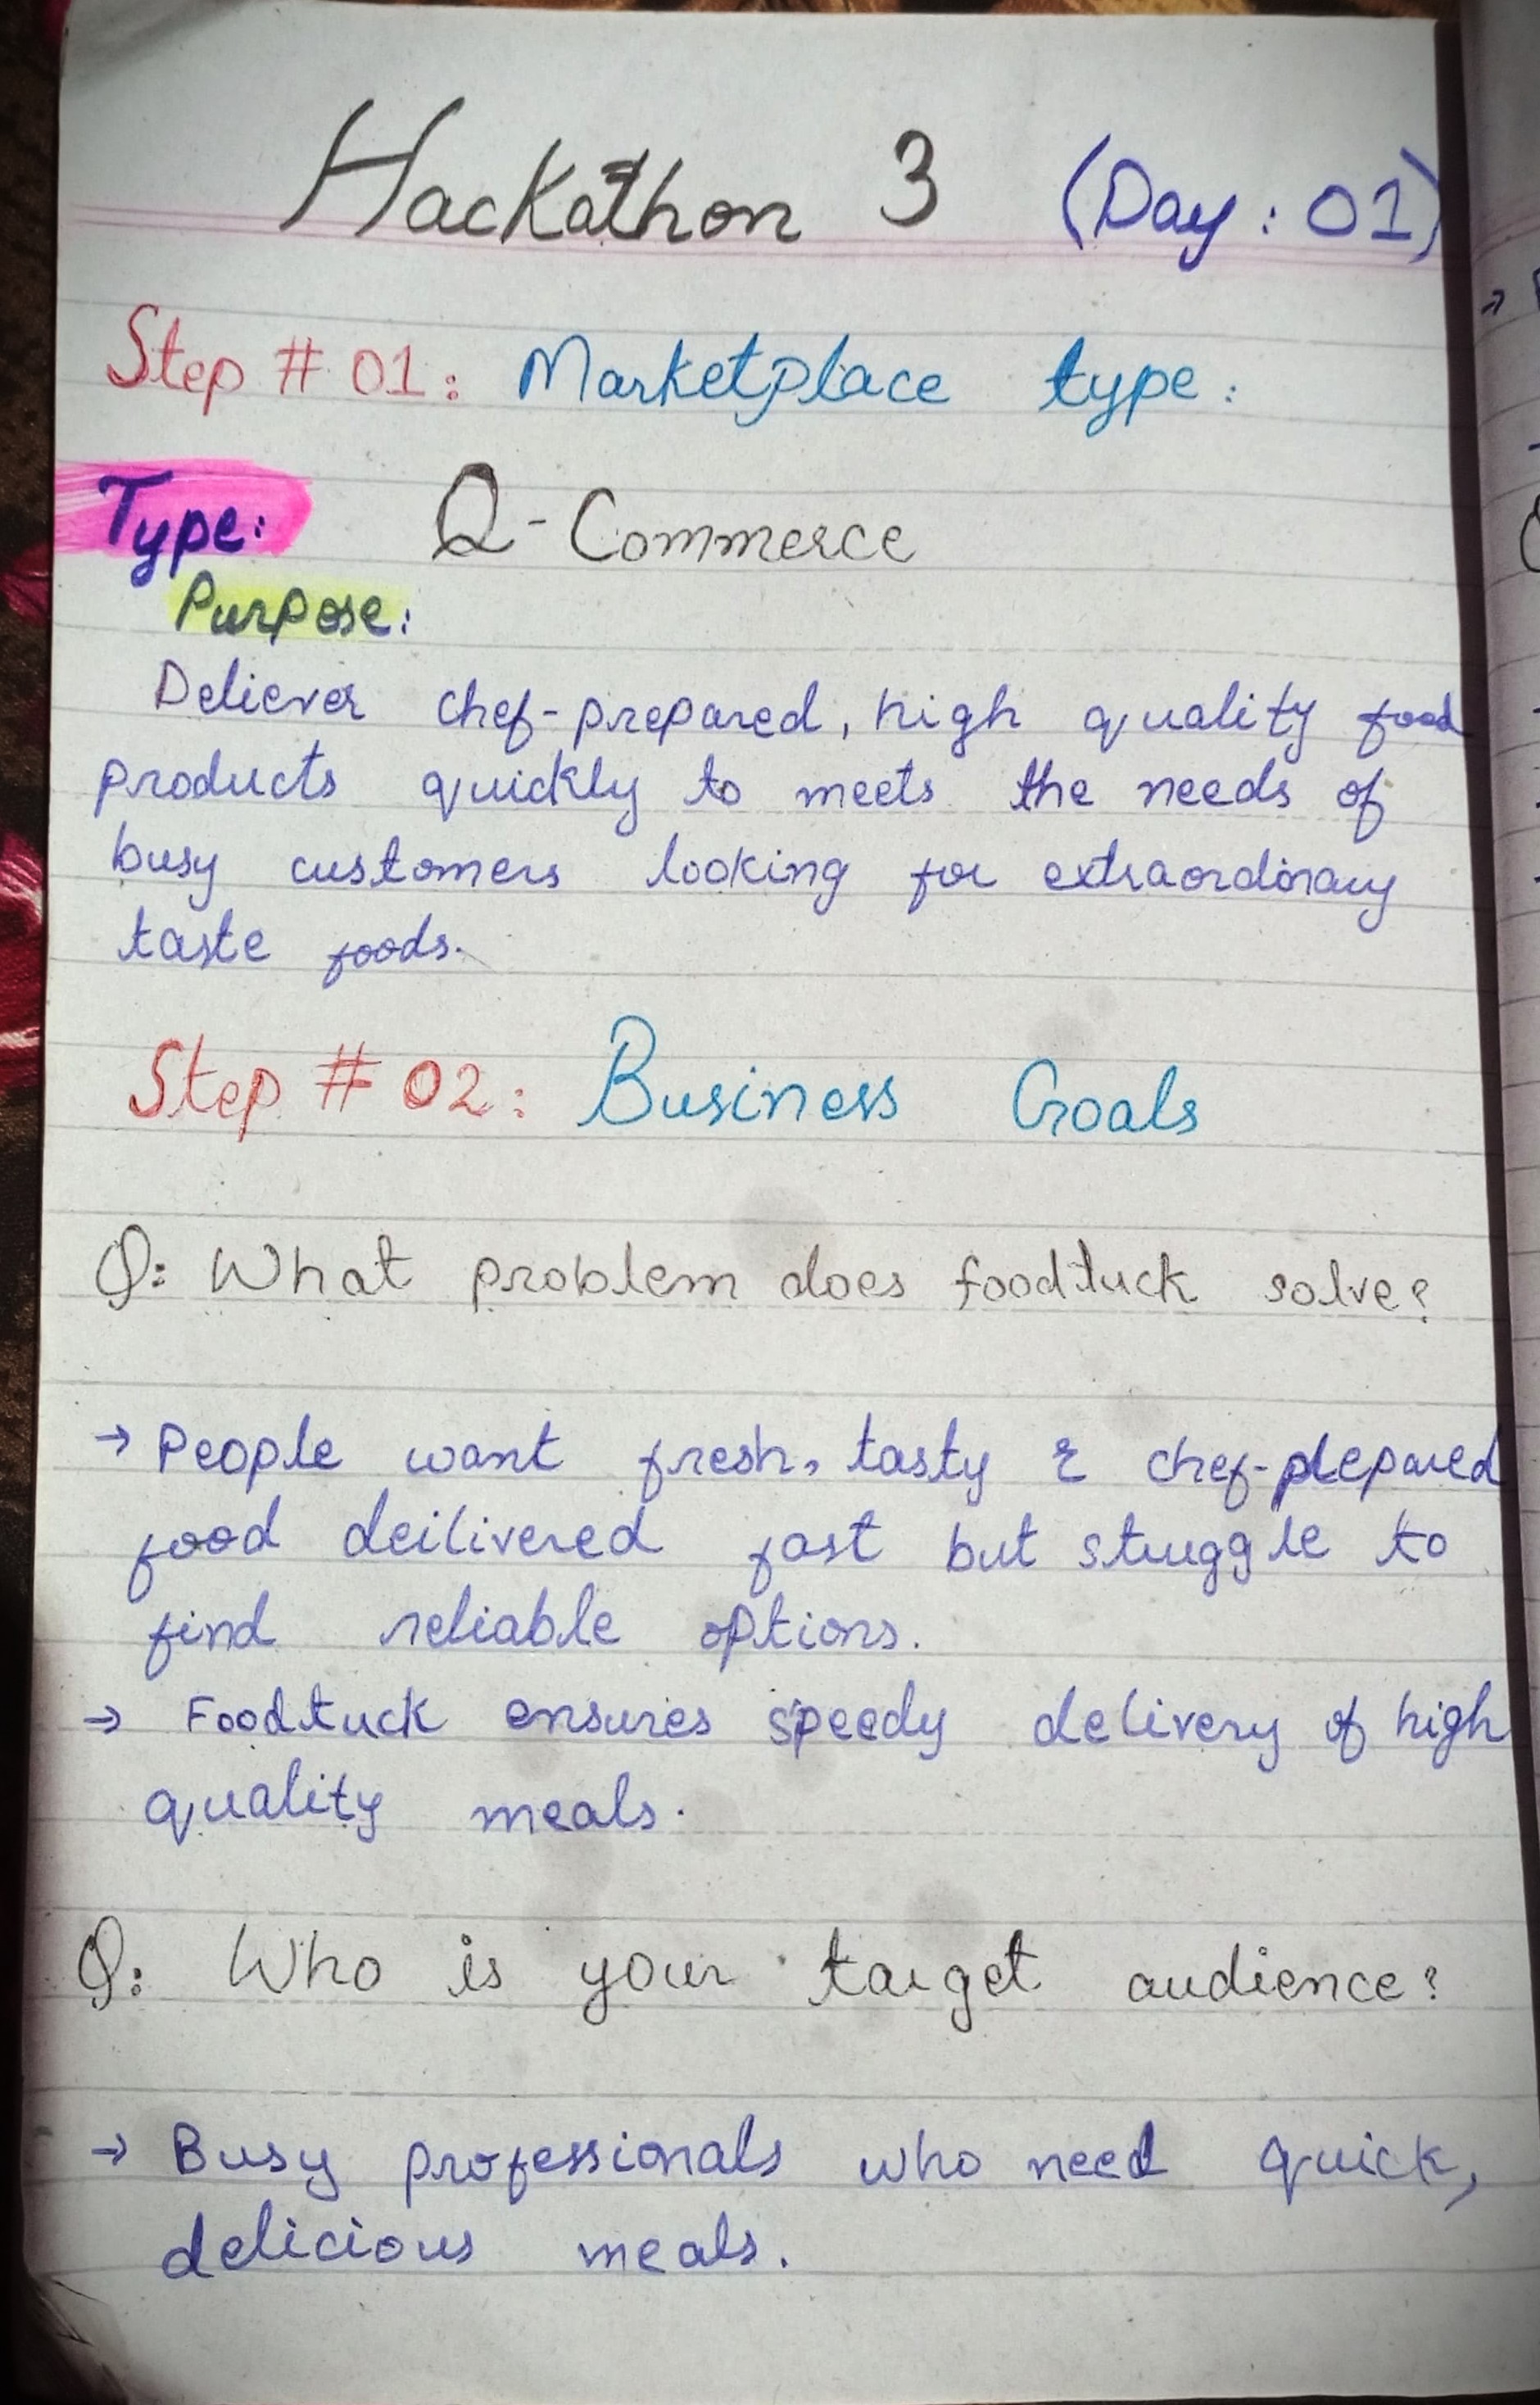 Hackathon 3 (Day : 01)
Step # 01 : Marketplace type :
Type: Q-Commerce
Purpose:
Deliever chef-prepared, high quality food
products quickly to meets the needs of
busy customers looking for extraordinary
taste foods.
Step # 02 : Business Goals
Q: What problem does foodtuck solve?
→ People want fresh, tasty & chef-prepared
food deilivered fast but struggle to
find reliable options.
→ Foodtuck ensures speedy delivery of high
quality meals.
Q: Who is your target audience?
→ Busy professionals who need quick,
delicious meals.